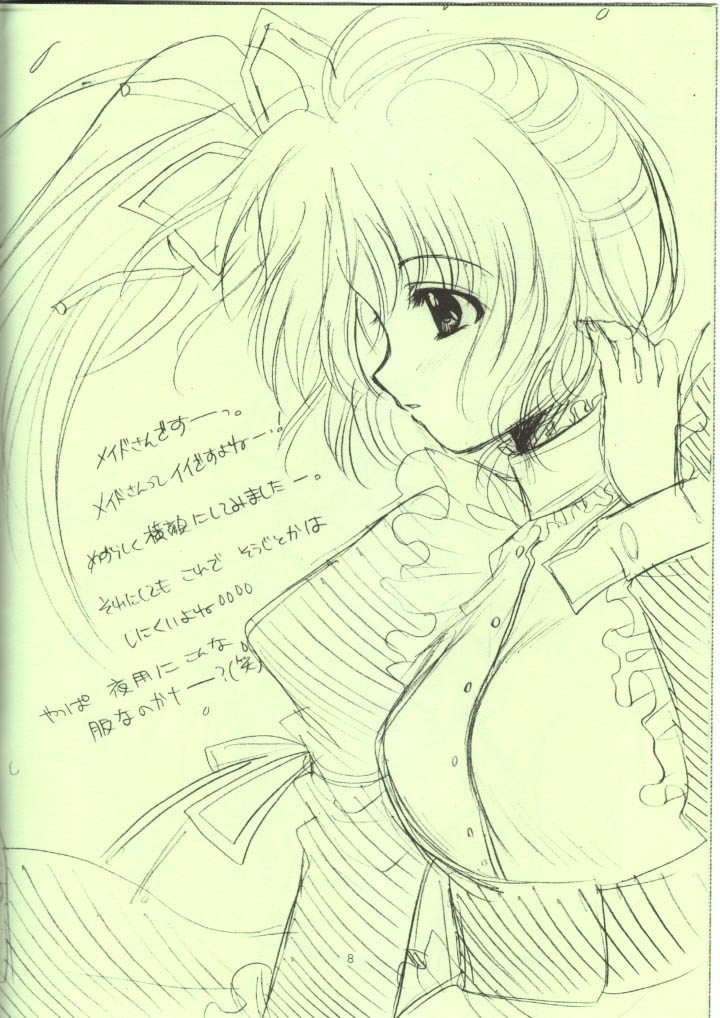 メイドさんですーっ。
メイドさんってイイですよねー!!
めずらしく横顔にしてみましたー。
それにしても これで そうじとかは
しにくいよね。。。。
やっぱ 夜用に こんな
服なのかナー?(笑)
8